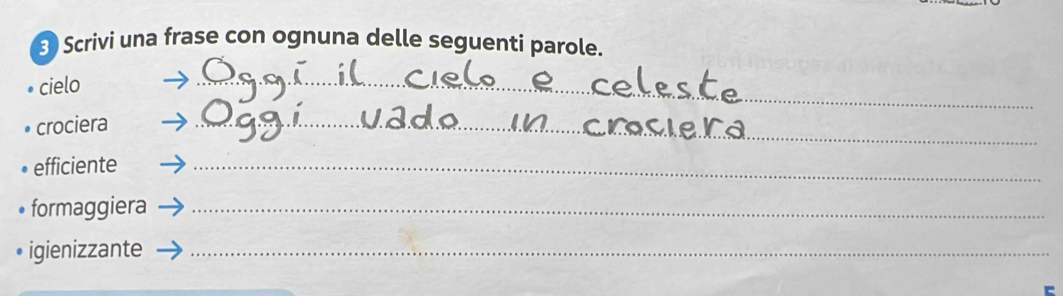 3 Scrivi una frase con ognuna delle seguenti parole.
• cielo → Oggi il cielo e celeste
• crociera → Oggi vado in crociera
• efficiente →
• formaggiera →
• igienizzante →